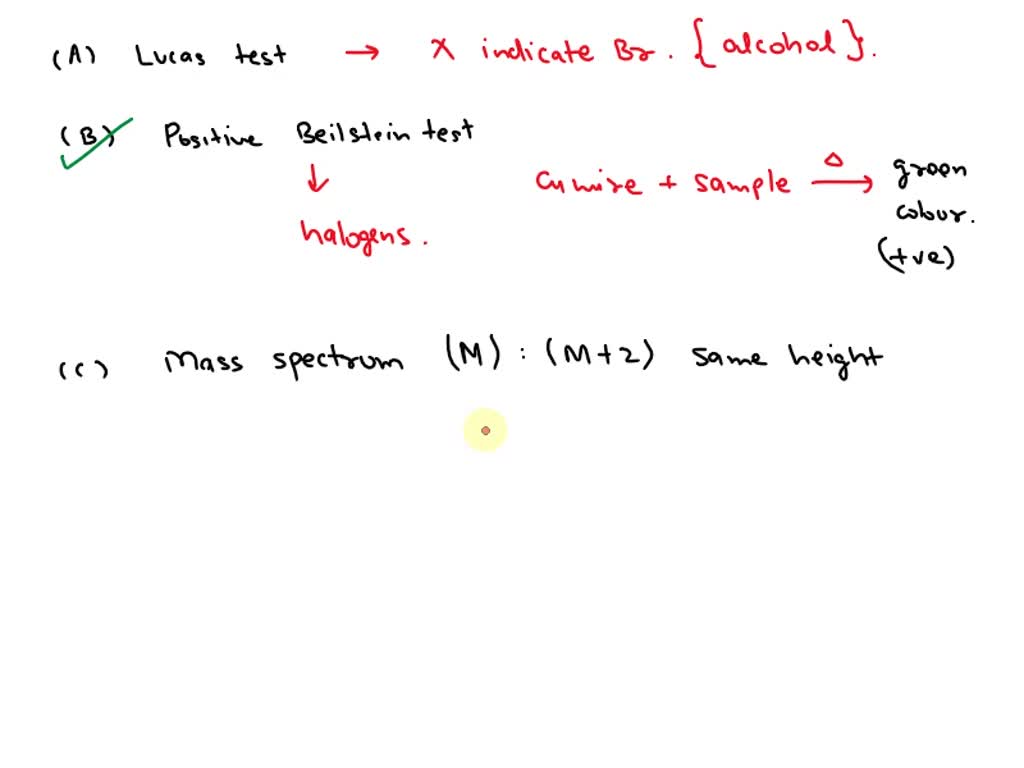 (A) Lucas test → X indicate Br. {alcohol}.
(B) Positive Beilstein test
↓
halogens.
Cu wire + sample Δ→ green
colour.
(+ve)
(C) Mass spectrum (M) : (M+2) same height